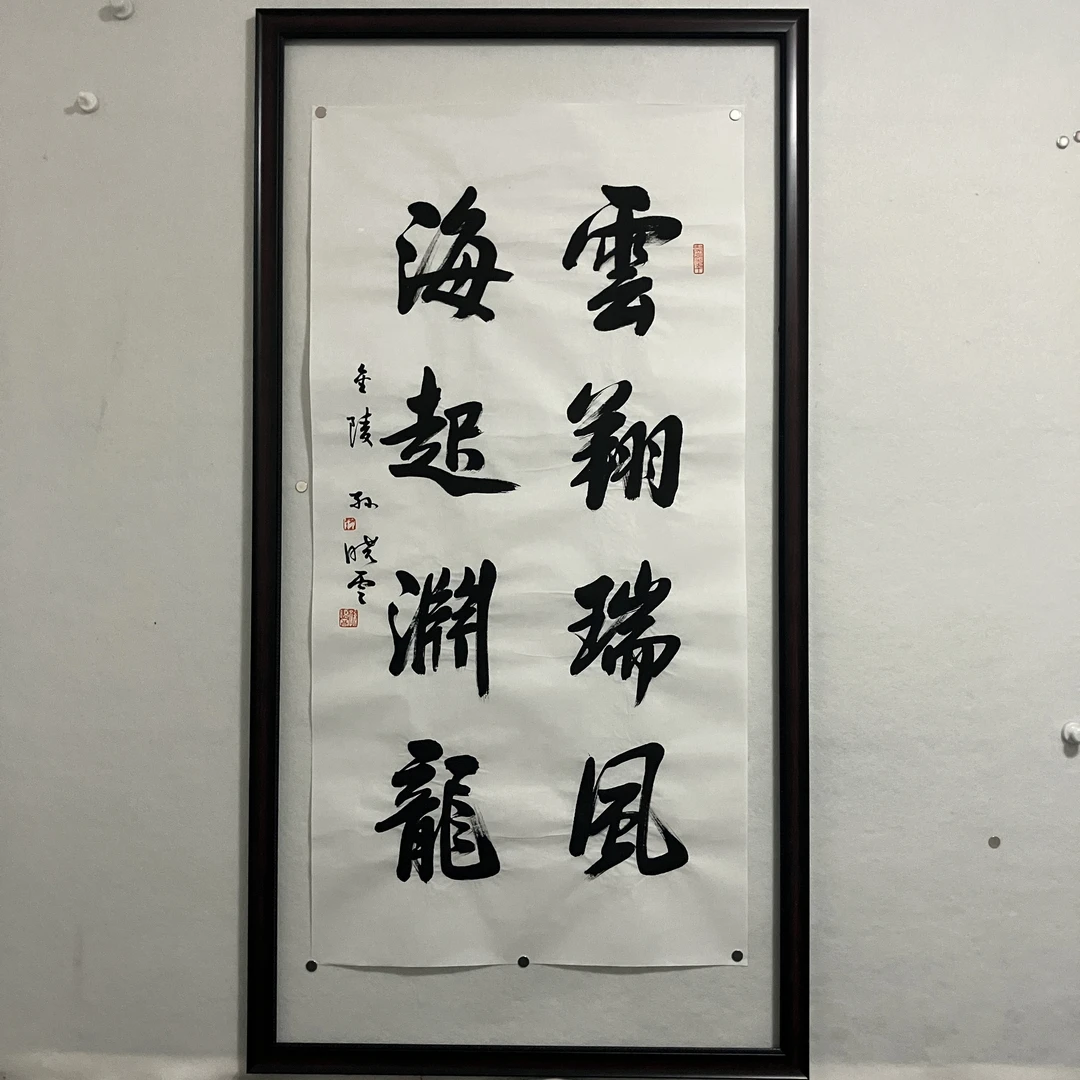 雲翔瑞風
海起淵龍
金陵 孙晓雲